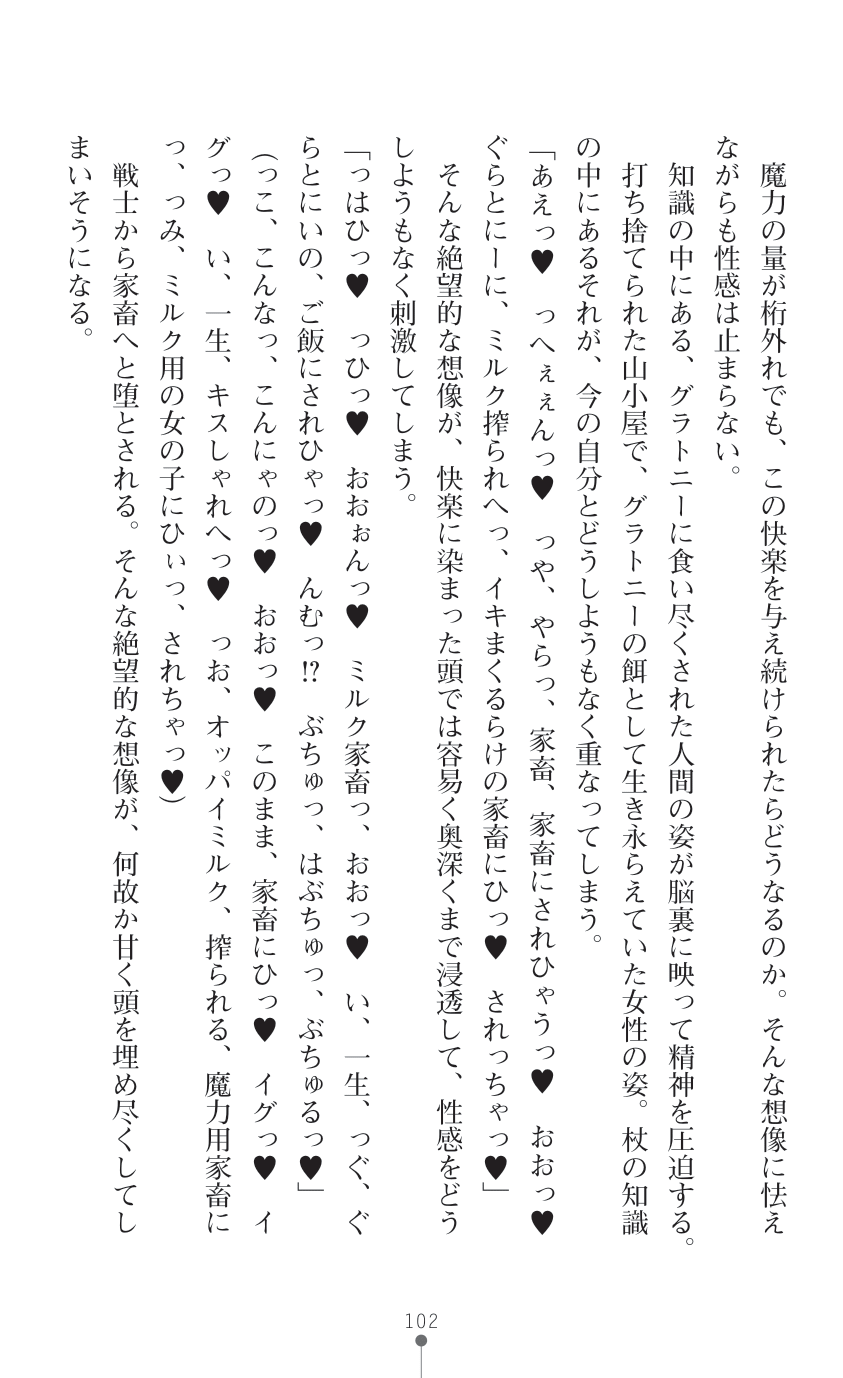 魔力の量が桁外れでも、この快楽を与え続けられたらどうなるのか。そんな想像に怯え
ながらも性感は止まらない。
　知識の中にある、グラトニーに食い尽くされた人間の姿が脳裏に映って精神を圧迫する。
　打ち捨てられた山小屋で、グラトニーの餌として生き永らえていた女性の姿。杖の知識
の中にあるそれが、今の自分とどうしようもなく重なってしまう。
「あえっ♥　っへぇぇんっ♥　っや、やらっ、家畜、家畜にされひゃうっ♥　おおっ♥
ぐらとにーに、ミルク搾られへっ、イキまくるらけの家畜にひっ♥　されっちゃっ♥」
　そんな絶望的な想像が、快楽に染まった頭では容易く奥深くまで浸透して、性感をどう
しようもなく刺激してしまう。
「っはひっ♥　っひっ♥　おおぉんっ♥　ミルク家畜っ、おおっ♥　い、一生、っぐ、ぐ
らとにいの、ご飯にされひゃっ♥　んむっ!?　ぶちゅっ、はぶちゅっ、ぶちゅるっ♥」
（っこ、こんなっ、こんにゃのっ♥　おおっ♥　このまま、家畜にひっ♥　イグっ♥　イ
グっ♥　い、一生、キスしゃれへっ♥　っお、オッパイミルク、搾られる、魔力用家畜に
っ、っみ、ミルク用の女の子にひぃっ、されちゃっ♥）
　戦士から家畜へと堕とされる。そんな絶望的な想像が、何故か甘く頭を埋め尽くしてし
まいそうになる。
102